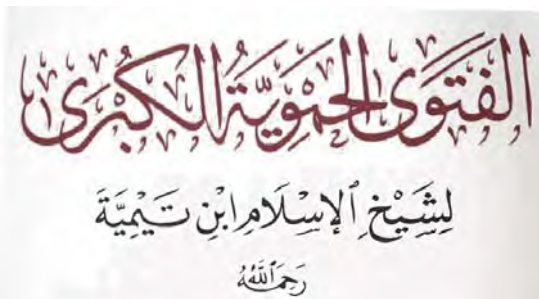 الفَتْوَى الحَمَوِيَّةُ الكُبْرَى
لِشَيْخِ ٱلْإِسْلَامِ ابْنِ تَيْمِيَّةَ
رَحِمَهُ ٱللَّهُ